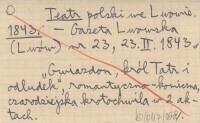 Teatr polski we Lwowie.
1843. — Gazeta Lwowska
(Lwów) nr 23, 23.II.1843.
„Gwiazdon, król Tatr i
odludek", romantyczno-komiczna,
czarodziejska krotochwila w 2 ak-
tach.